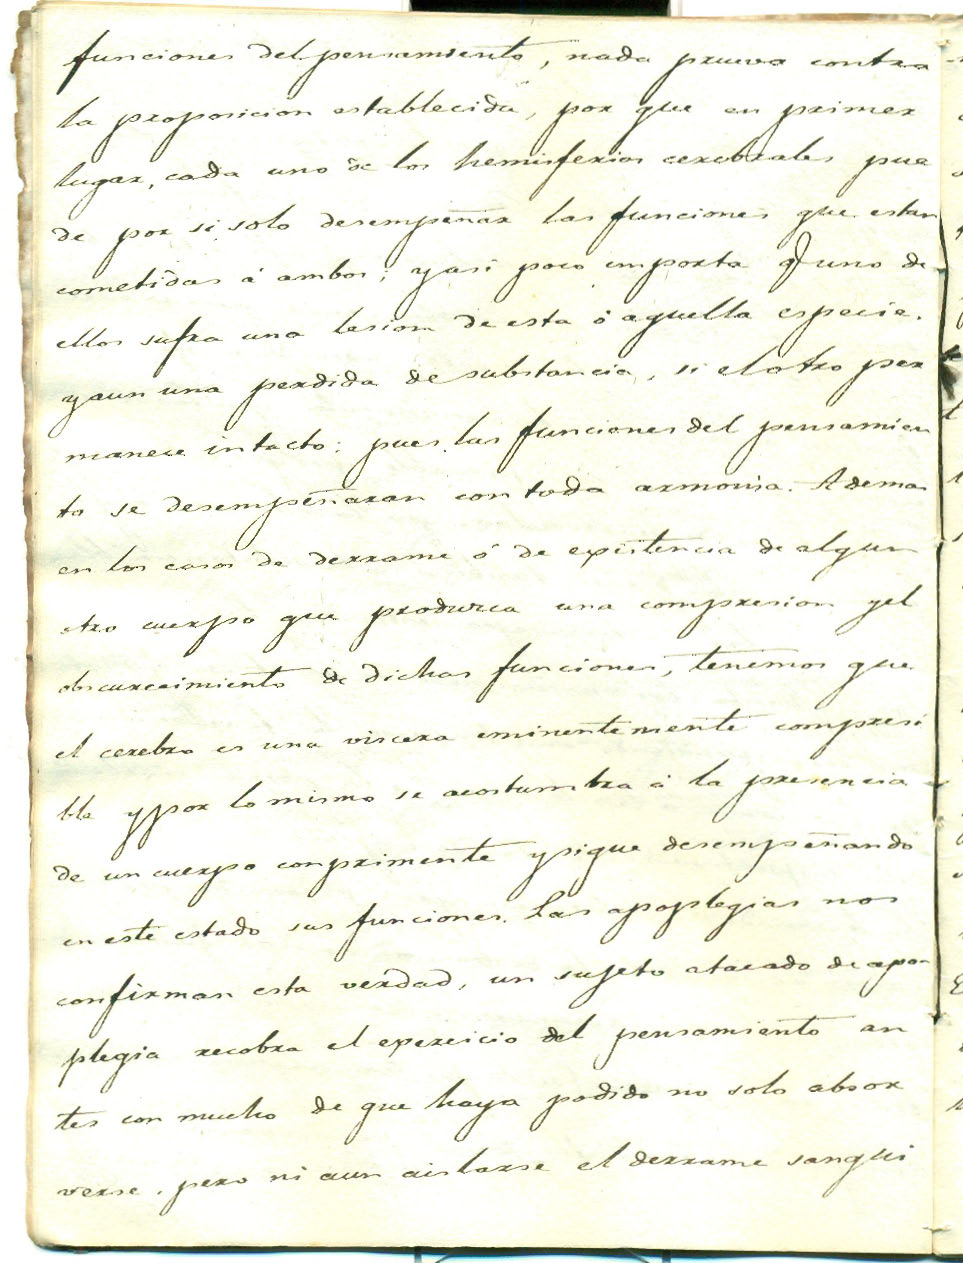 funciones del pensamiento, nada prueva contra
la proposicion establecida, por que en primer
lugar, cada uno de los hemisferios cerebrales pue
de por si solo desempeñar las funciones que estan
cometidas á ambos; y asi poco importa q uno de
ellos sufra una lesion de esta ó aquella especie.
y aun una perdida de substancia, si el otro per
manece intacto: pues las funciones del pensamien
to se desempeñaran con toda armonia. Ademas
en los casos de derrame ó de existencia de algun
otro cuerpo que produzca una compresion y el
obscurecimiento de dichas funciones, tenemos que
el cerebro es una viscera eminentemente compresi
ble y por lo mismo se acostumbra á la presencia
de un cuerpo conprimente y sigue desempeñando
en este estado sus funciones. Las apoplegias nos
confirman esta verdad, un sujeto atacado de apo
plegia recobra el exercicio del pensamiento an
tes con mucho de que haya podido no solo absor
verse, pero ni aun aislarse el derrame sangui